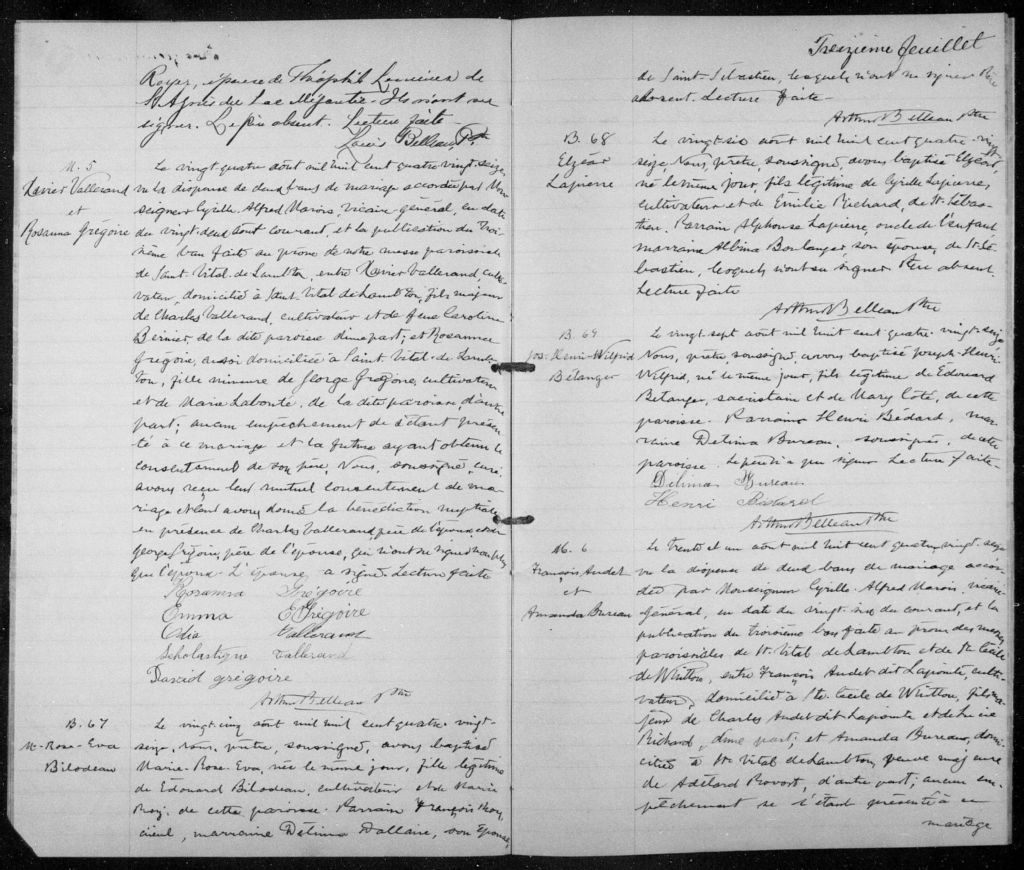 Royer, épouse de Théophile Lemieux de
St Agnès du Lac Mégantic. Ils n'ont su
signer. Le père absent. Lecture faite
Belleau Ptre
M. 5
Xavier Vallerand
et
Rosanna Grégoire
Le vingt quatre août mil huit cent quatre vingt seize,
vu la dispense de deux bans de mariage accordée par Mon
seigneur Cyrille Alfred Marois, vicaire général, en date
du vingt-deux août courant, et la publication du troi
sième ban faite au prône de notre messe paroissiale
de Saint-Vital de Lambton, entre Xavier Vallerand, culti-
vateur, domicilié à Saint Vital de Lambton, fils majeur
de Charles Vallerand, cultivateur et de feue Caroline
Bernier, de la dite paroisse d'une part; et Rosanna
Grégoire, aussi domiciliée à Saint Vital de Lamb-
ton, fille mineure de George Grégoire, cultivateur
et de Marie Labonté, de la dite paroisse, d'autre
part; aucun empêchement ne s'étant présen-
té à ce mariage et la future ayant obtenu le
consentement de son père, Nous, soussigné, curé
avons reçu leur mutuel consentement de ma-
riage et leur avons donné la bénédiction nuptiale
en présence de Charles Vallerand père de l'époux, et de
George Grégoire, père de l'épouse, qui n'ont su signer non plus
que l'époux. L'épouse a signé. Lecture faite
Rosanna Grégoire
Emma E Grégoire
Odia Vallerand
Scholastique Vallerand
David grégoire
Arthur Belleau Ptre
B. 67
M-Rose-Eva
Bilodeau
Le vingt-cinq août mil huit cent quatre-vingt-
seize, nous, prêtre, soussigné, avons baptisé
Marie-Rose-Eva, née le même jour, fille légitime
de Edouard Bilodeau, cultivateur et de Marie
Roy, de cette paroisse. Parrain François
marraine Délima Dallaire, son épouse,
Treizième feuillet
de Saint-Sébastien, lesquels n'ont su signer Père
absent. Lecture faite
Arthur Belleau Ptre
B. 68
Elzéar
Lapierre
Le vingt-six août mil huit cent quatre vingt
seize, Nous, prêtre, soussigné, avons baptisé Elzéar,
né le même jour, fils légitime de Cyrille Lapierre,
cultivateur et de Emilie Richard, de St. Sébas-
tien. Parrain Alphonse Lapierre, oncle de l'enfant
marraine Albina Boulanger, son épouse, de St. Sé-
bastien, lesquels n'ont su signer Père absent.
Lecture faite
Arthur Belleau Ptre
B. 69
Jos-Henri-Wilfrid
Bélanger
Le vingt-sept août mil huit cent quatre-vingt-seize
Nous, prêtre soussigné, avons baptisé Joseph-Henri-
Wilfrid, né le même jour, fils légitime de Edouard
Bélanger, sacristain et de Mary Coté, de cette
paroisse. Parrain Henri Bédard, mar-
raine Délima Bureau, soussignés, de cette
paroisse. Le père n'a pu signer Lecture faite
Délima Bureau
Henri Bédard
Arthur Belleau Ptre
M. 6
François Audet
et
Amanda Bureau
Le trente et un août mil huit cent quatre-vingt-seize
vu la dispense de deux bans de mariage accor-
dée par Monseigneur Cyrille-Alfred Marois, vicaire
Général, en date du vingt-six du courant, et la
publication du troisième ban faite au prône des messes
paroissiales de St. Vital de Lambton et de Ste Cécile
de Whitton, entre François Audet dit Lapointe, culti-
vateur, domicilié à Ste. Cécile de Whitton, fils ma-
jeur de Charles Audet dit Lapointe et de Lucie
Richard, d'une part; et Amanda Bureau, domi-
ciliée à St Vital de Lambton, veuve majeure
de Adélard Provost, d'autre part; aucun em-
pêchement ne s'étant présenté à ce
mariage